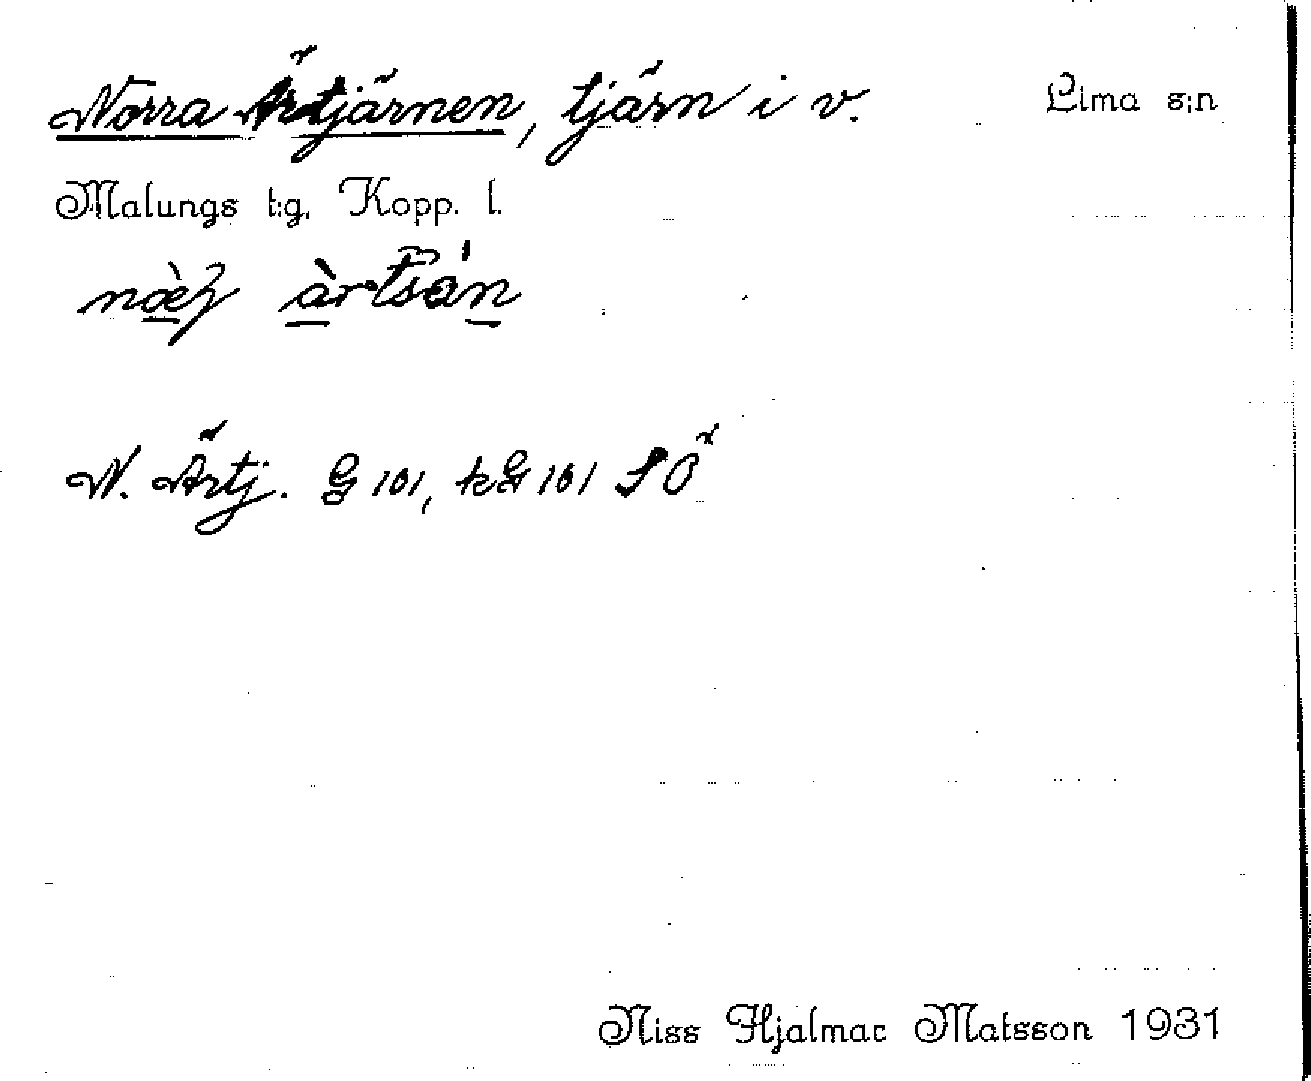 Norra Ärtjärnen, tjärn i v. Lima s:n
Malungs t:g, Kopp. l.
N. Ärtj. G 101, kG 101 SÖ
Niss Hjalmar Matsson 1931